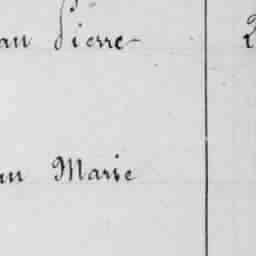 an Pierre
an Marie